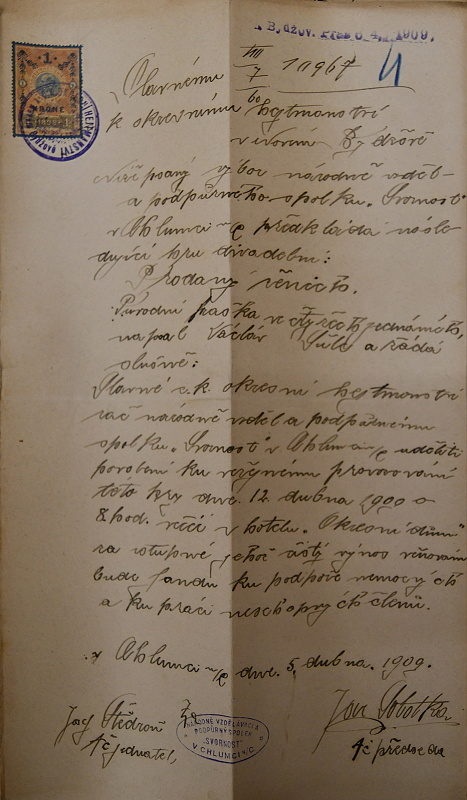 N. Býdžov. Prés 6 4. 1909.
VIII
7
10967
4
60
1
KRONE
1898
Slavnému
c. k. okresnímu hejtmanství
v Novém Bydžově
Níže psaný výbor národně vzděl-
a podpůrného spolku „Svornost"
v Chlumci n/C předkládá násle-
dující hru divadelní:
Prodaný ženich.
Původní fraška ve čtyřech jednáních,
napsal Václav Šulc a žádá
slušně:
Slavné c. k. okresní hejtmanství
rač národně vzděl a podpůrnému
spolku „Svornost" v Chlumci n/C uděliti
povolení ku veřejnému provozování
této hry dne. 12 dubna 1909 o
8 hod. večer v hotelu „Okresní dům"
za vstupné jehož čistý výnos věnován
bude fondu ku podpoře nemocných
a ku práci neschopných členů.
v Chlumci n/C dne. 5. dubna. 1909.
Jos Štědroň
t. č. jednatel,
Za
NÁRODNĚ VZDĚLÁVACÍ A
PODPŮRNÝ SPOLEK
„SVORNOST"
V CHLUMCI N/C.
Jan Sobotka
t. č. předseda